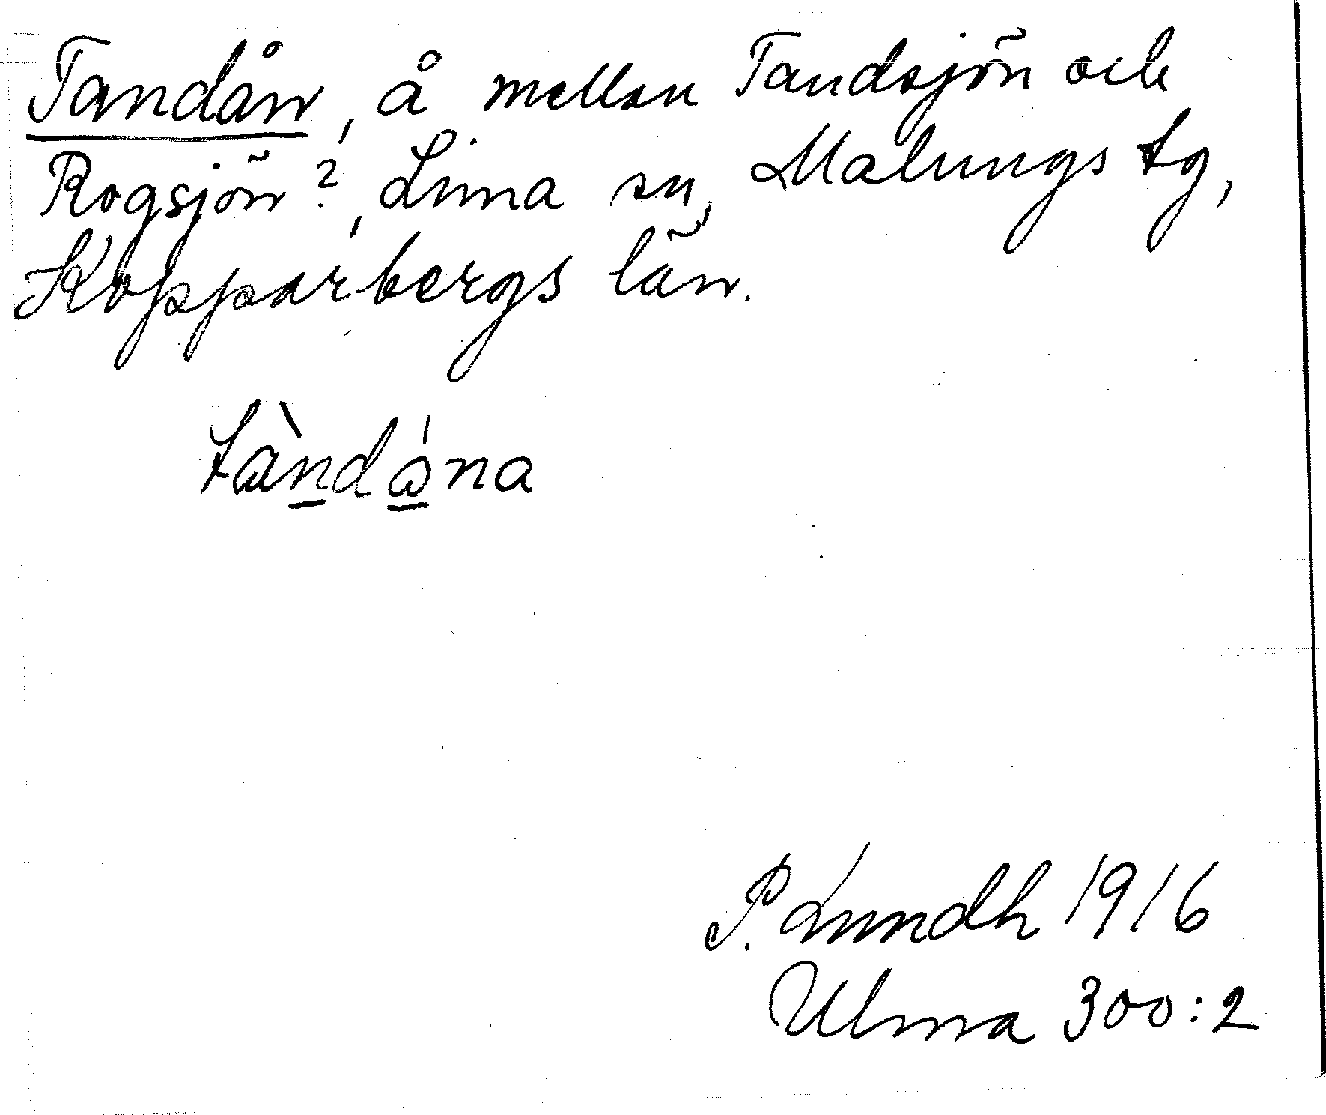 Tandån, å mellan Tandsjön och
Rogsjön?, Lima sn, Malungs tg,
Kopparbergs län.
tàndǻna
P. Lundh 1916
Ulma 300:2